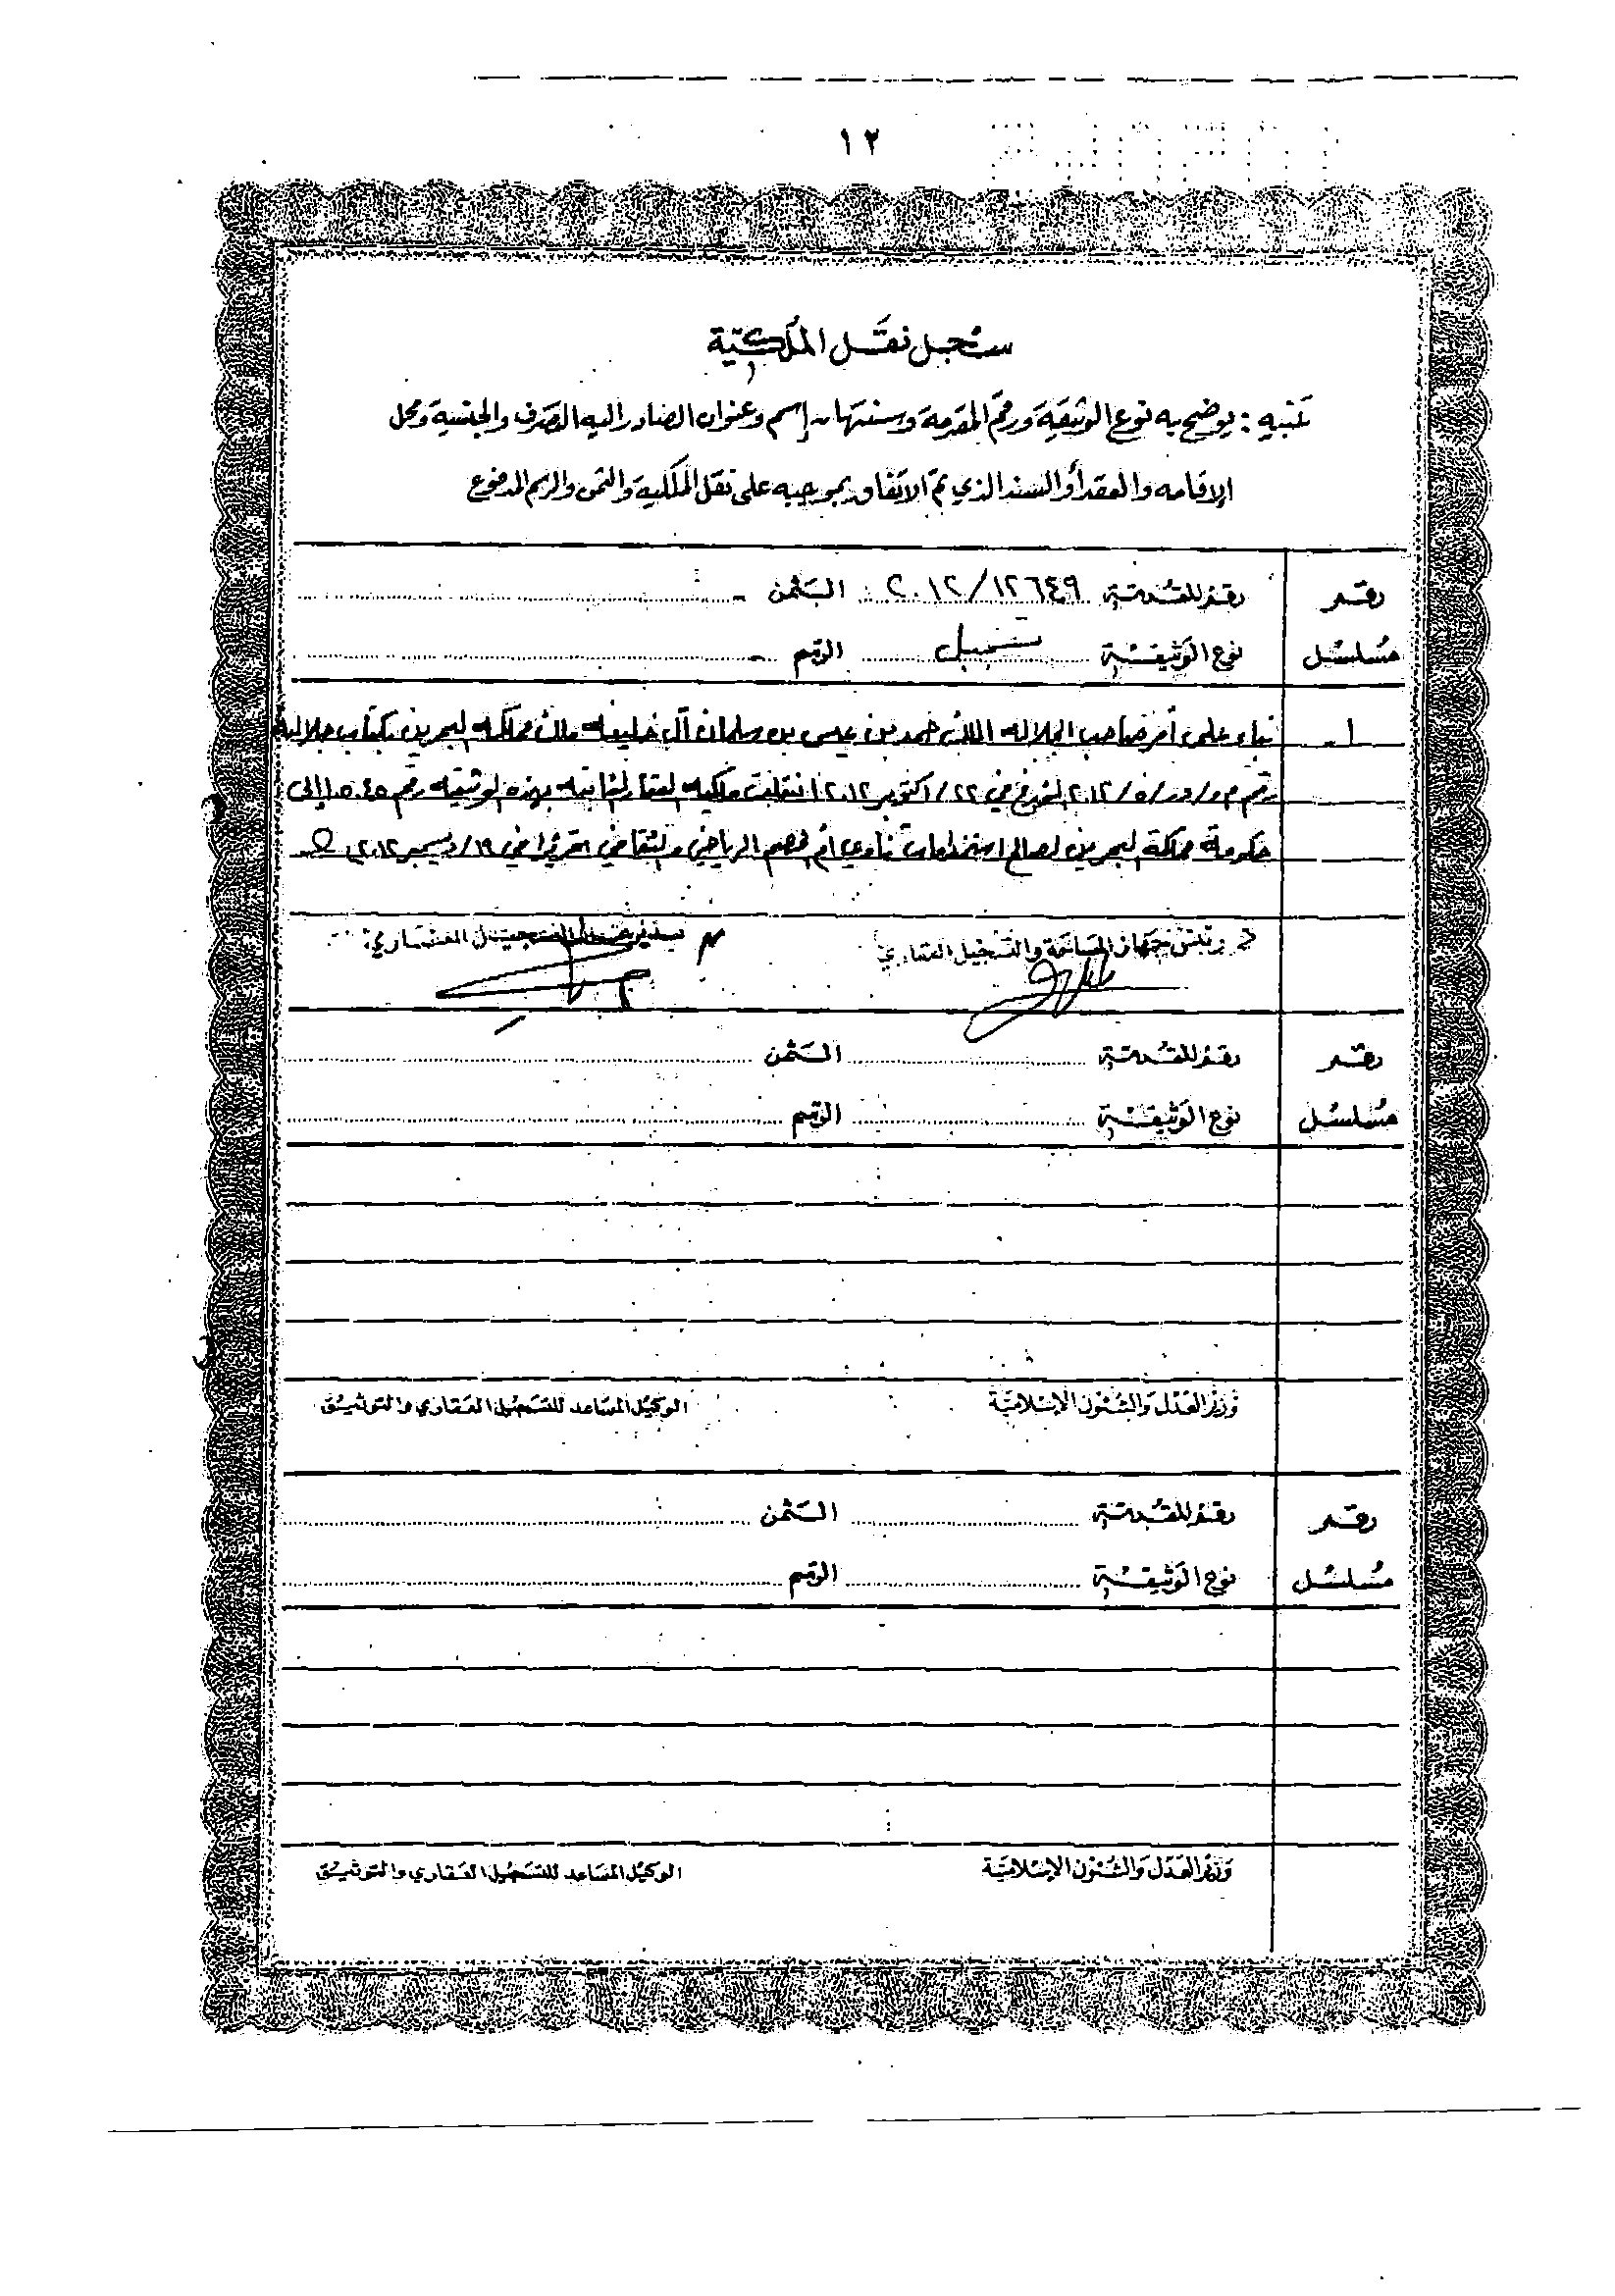 ١٢
سجل نقل الملكية
تنبيه : يوضح به نوع الوثيقة ورقم المقدمة وسنتها - إسم وعنوان الصادر اليه التصرف والجنسية ومحل
الاقامه والعقد أو السند الذي تم الاتفاق بموجبه على نقل الملكية والثمن والرسم المدفوع
رقم رقم المقدمة ٢٠١٢/١٢٦٤٩ الثمن -
مسلسل نوع الوثيقة تسجيل الرسم -
١- بناء على أمر صاحب الجلالة الملك حمد بن عيسى بن سلمان آل خليفة ملك مملكة البحرين بكتاب جلالته
رقم م و/دد/٢٠١٢/٥ المؤرخ في ٢٢/أكتوبر ٢٠١٢ انتقلت ملكية العقار الثابتة بهذه الوثيقة رقم ١٥٠٤٥ إلى
حكومة مملكة البحرين لصالح استخدامات نادي أم الحصم الرياضي والثقافي تحريرا في ١٩/ديسمبر ٢٠١٢
رئيس جهاز المساحة والتسجيل العقاري التسجيل العقاري
رقم رقم المقدمة الثمن
مسلسل نوع الوثيقة الرسم
وزير العدل والشئون الإسلامية الوكيل المساعد للتسجيل العقاري والتوثيق
رقم رقم المقدمة الثمن
مسلسل نوع الوثيقة الرسم
وزير العدل والشئون الإسلامية الوكيل المساعد للتسجيل العقاري والتوثيق